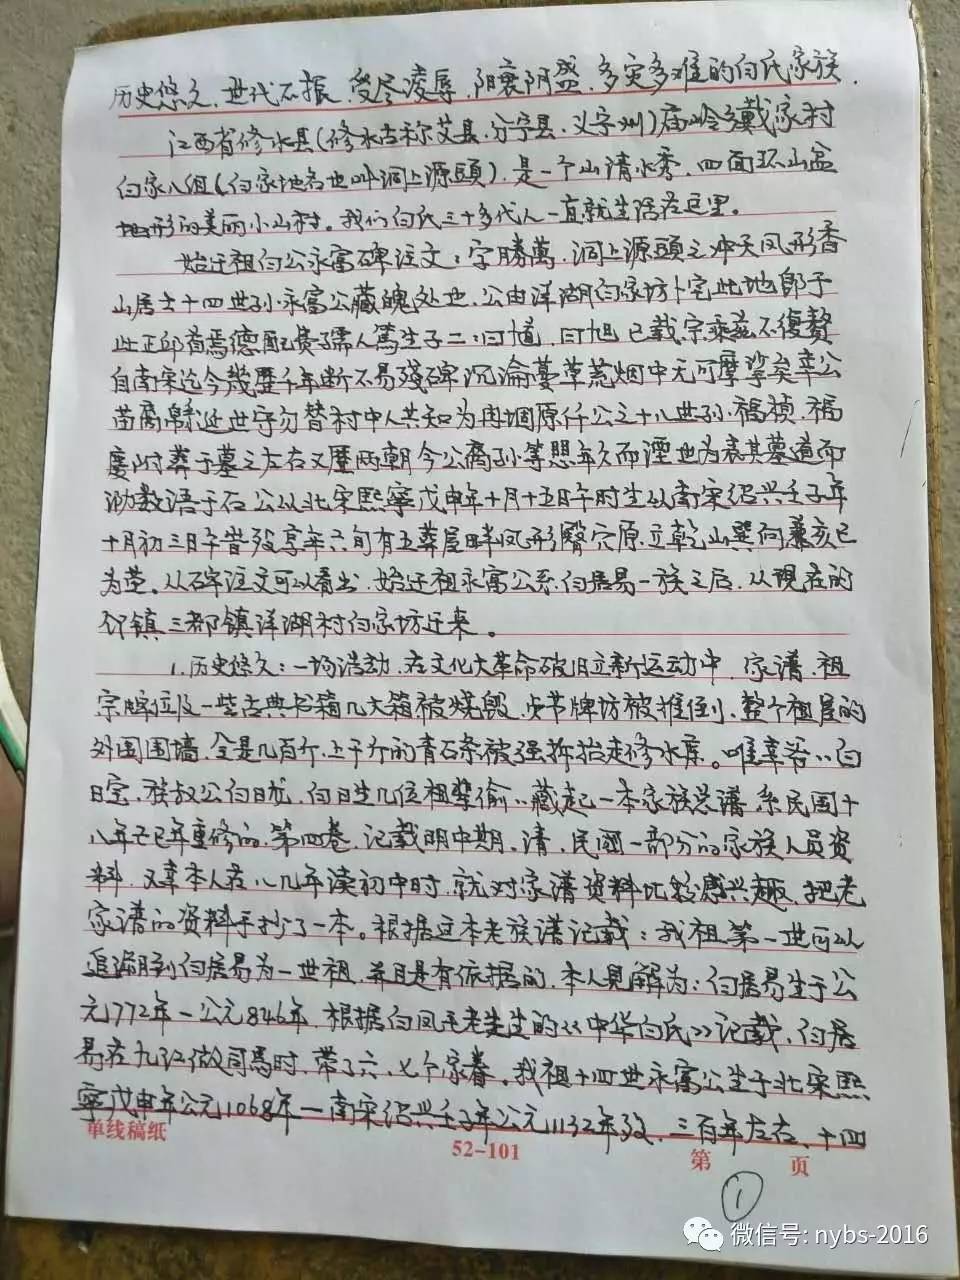 历史悠久，世代不振，受尽凌辱，阳衰阴盛，多灾多难的白氏家族．
江西省修水县(修水古称艾县，分宁县，义宁州)庙岭乡戴家村
白家八组(白家地名也叫洞上源頭)，是一个山清水秀，四面环山盆
地形的美丽小山村。我们白氏三十多代人一直就生活在这里。
始迁祖白公永富碑注文：字勝萬，洞上源頭之冲天凤形香
山居士十四世孙永富公藏魄处也，公由洋湖白家坊卜宅此地郎于
此正邱首焉德配黄孺人篤生子二：曰馗，曰旭已载宗乘兹不復贅
自南宋迄今幾歷千年断不易殘碑沉淪蔓草荒烟中无可摩挲矣幸公
苗裔緜延世守勿替村中人共知为 原仟公之十八世孙福禎，福
慶附葬于墓之左右又歷两朝今公裔孙等想年久而湮也为表其墓道而
泐数语于石公以北宋熙寧戊申年十月十五日午时生以南宋绍兴壬子年
十月初三日午昔殁享年六旬有五葬屋畔凤形臀穴原立乾山巽向兼亥巳
为茔。从碑注文可以看出，始迁祖永富公系白居易一族之后，从现在的
邻镇三都镇洋湖村白家坊迁来。
1.历史悠久：一场浩劫，在文化大革命破旧立新运动中，家谱，祖
宗牌位及一些古典书箱几大箱被烧毁，贞节牌坊被推倒，整个祖屋的
外围围墙，全是几百斤，上千斤的青石条被强拆抬走修水库。唯幸爷〃白
日宝，族叔公白日龙，白日生几位祖辈偷〃藏起一本家族老谱，系民国十
八年己巳年重修的，第四卷，记载明中期，清，民國一部分的家族人员资
料，又幸本人在八几年读初中时，就对家谱资料比较感兴趣，把老
家谱的资料手抄了一本。根据这本老族谱记载：我祖第一世可以
追溯到白居易为一世祖，并且是有依据的，本人見解为：白居易生于公
元772年－公元846年，根据白凤毛老先生的《中华白氏》记载，白居
易在九江做司馬时，带了六、七个家眷。我祖十四世永富公生于北宋熙
寧戊申年公元1068年－南宋绍兴壬子年公元1132年殁，三百年左右，十四
单线稿纸
52-101
第 页
1
微信号: nybs-2016